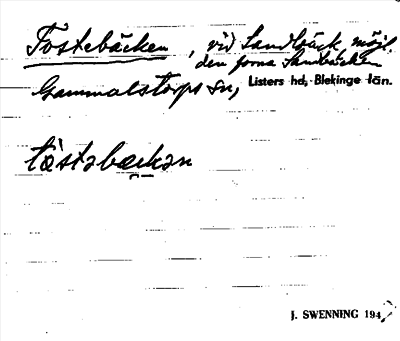 Tostebäcken, vid Sandbäck, möjl.
den forna Sandbäcken
Gammalstorps sn, Listers hd, Blekinge län.
tåstəbækən
J. SWENNING 194